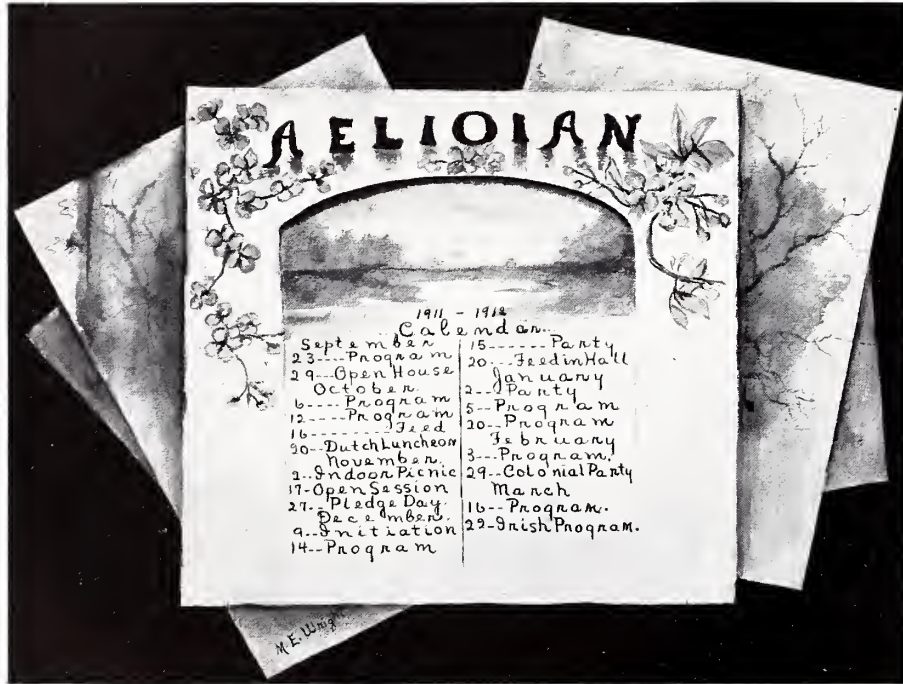 AELIOIAN
1911 - 1912
Calendar.
September
23----Program
29--Open House
October.
6----Program
12----Program
16--------Feed
20--Dutch Luncheon
November.
2--Indoor Picnic
17-Open Session
27--Pledge Day.
December.
9--Initiation
14--Program
15------Party
20---Feed in Hall
January
2---Party
5--Program
20--Program
February
3---Program.
29--Colonial Party
March
16--Program.
22-Irish Program.
M. E. Wright